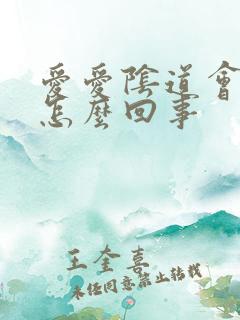 愛愛陰道會
怎麼回事
王奎喜
未经同意禁止转载